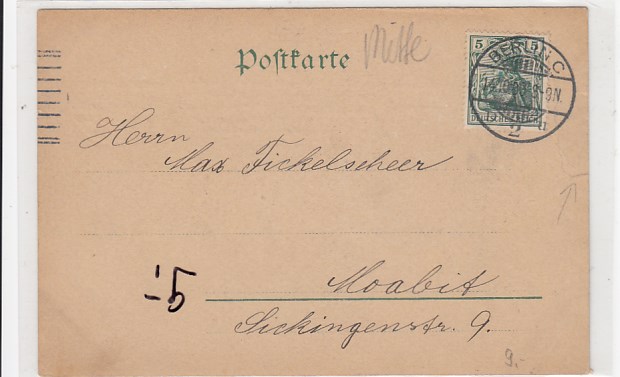 Postkarte
Mitte
5 5
BERLIN C
2
DEUTSCHES REICH
Herrn
Max Fickelscheer
Moabit
Sickingenstr. 9.
-5
9.-